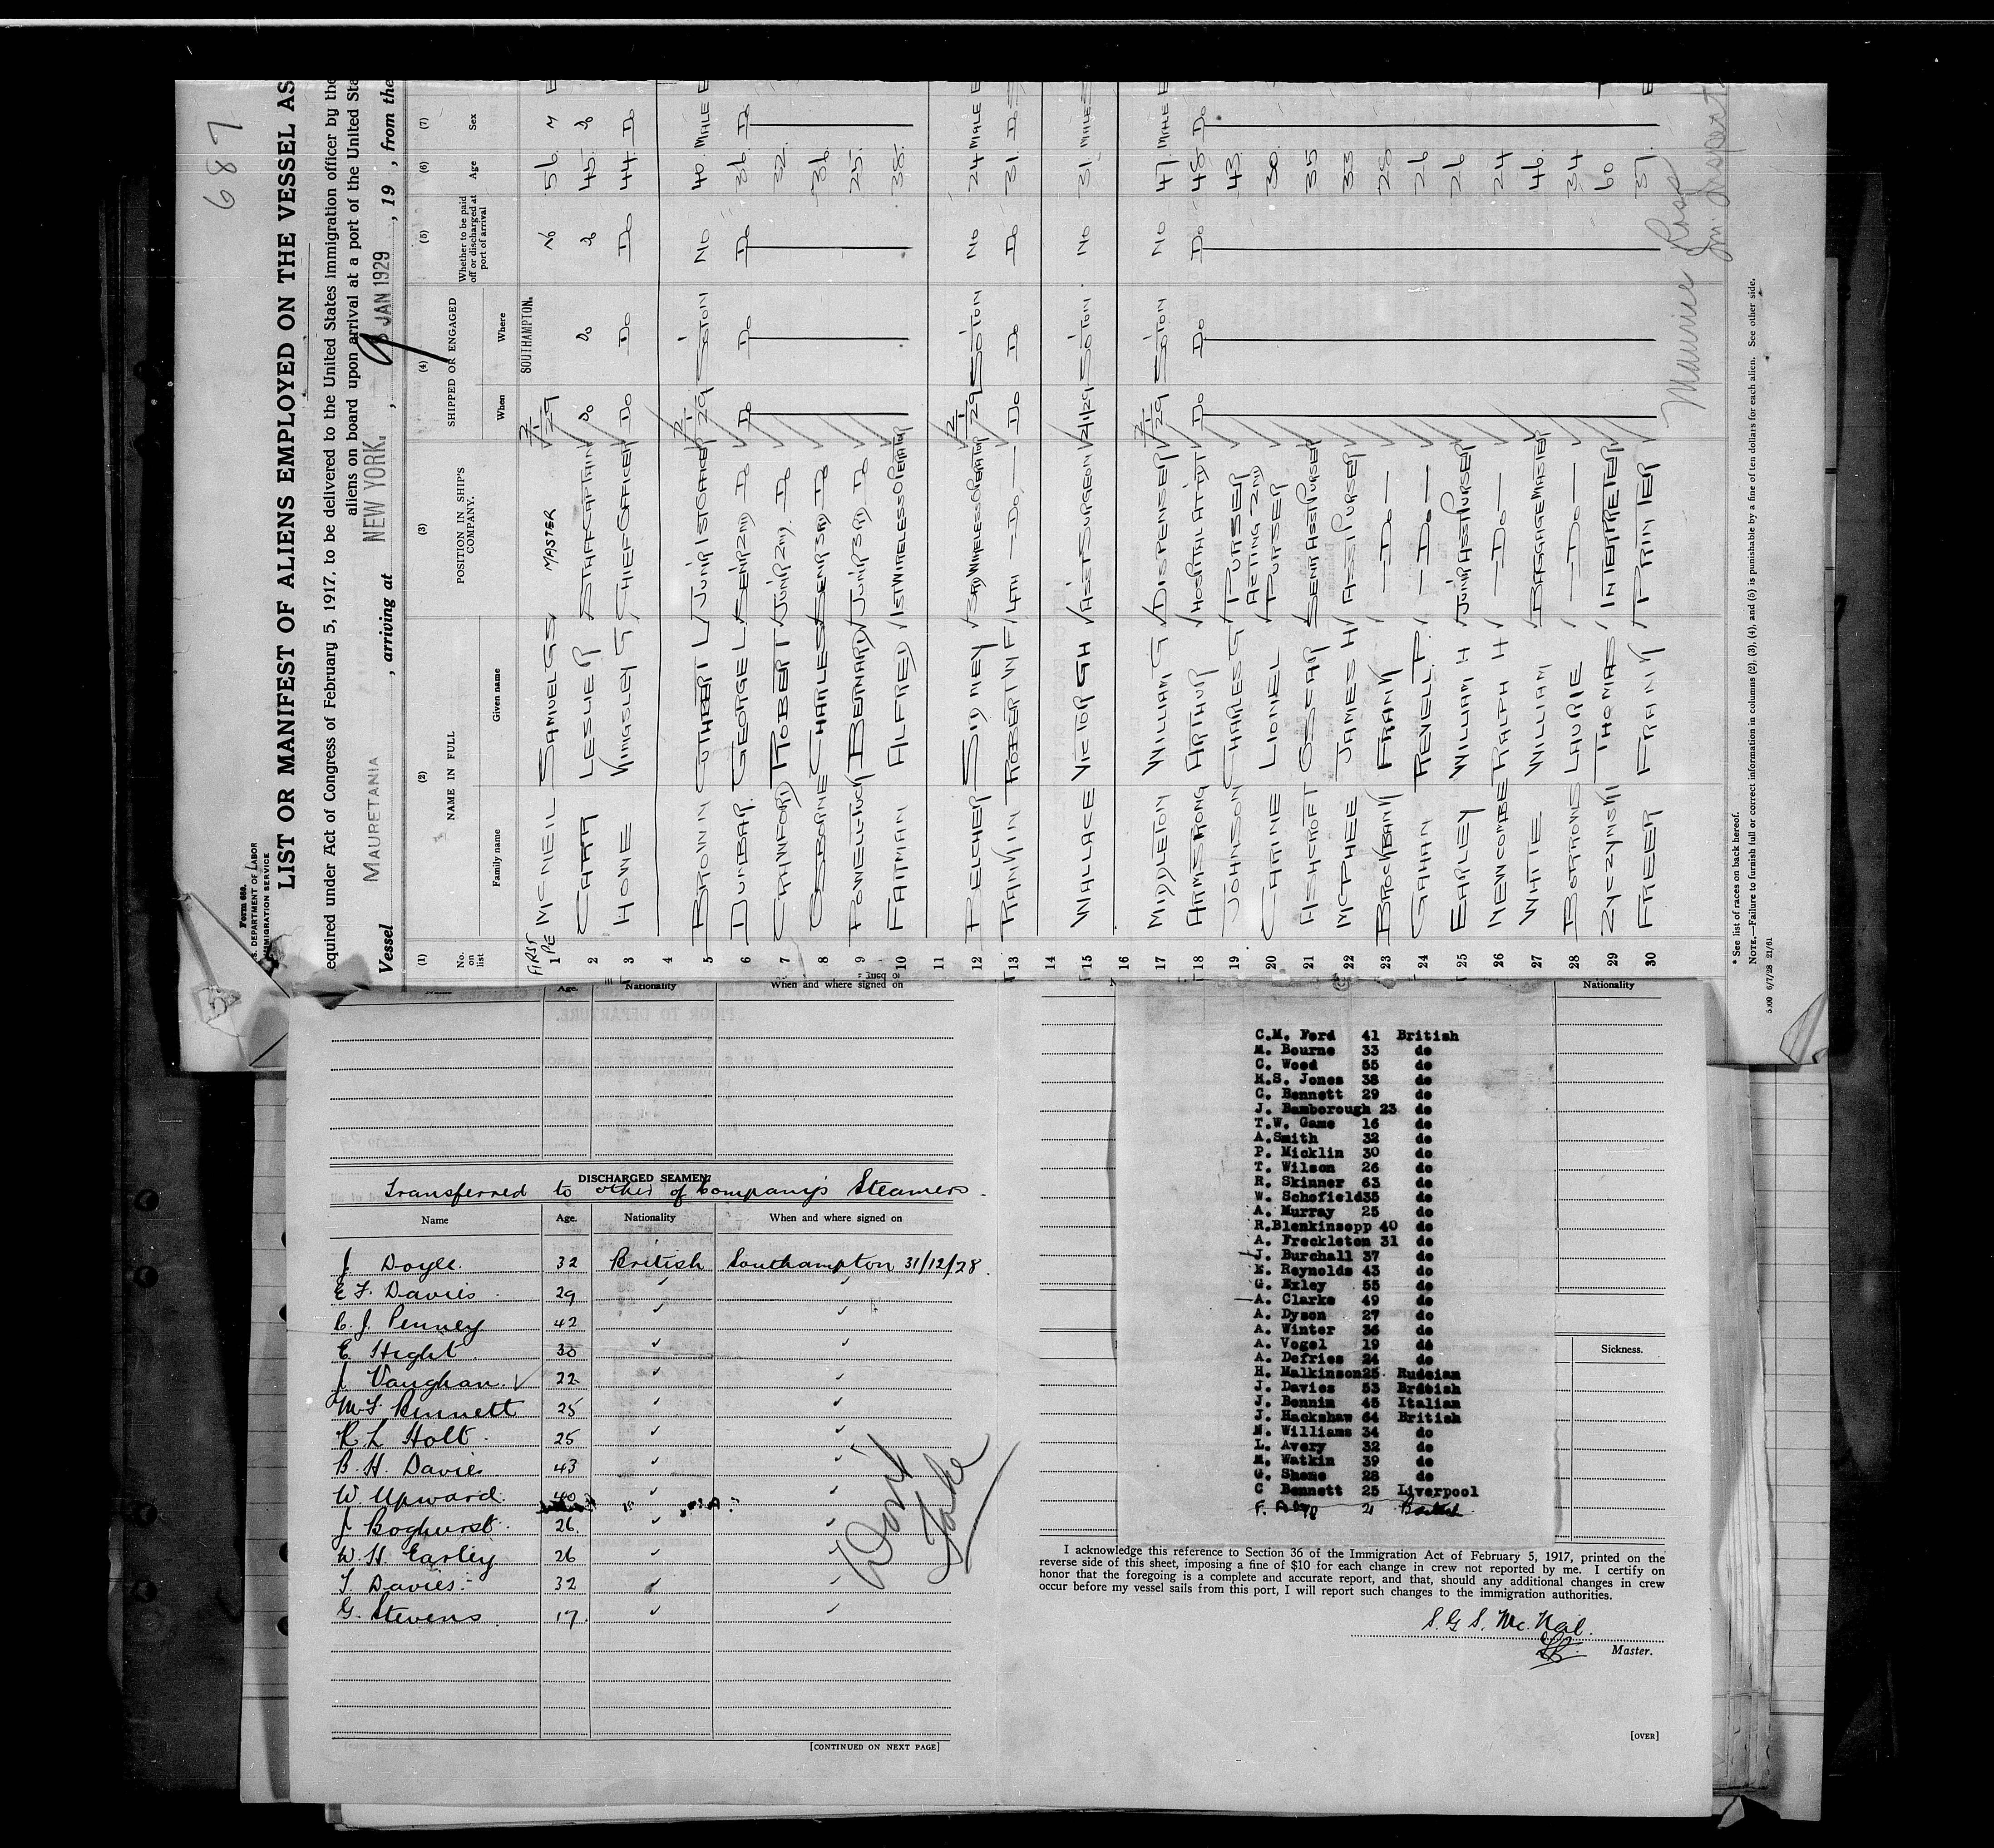 687
Form 680.
S. DEPARTMENT OF LABOR
IMMIGRATION SERVICE
LIST OR MANIFEST OF ALIENS EMPLOYED ON THE VESSEL AS
equired under Act of Congress of February 5, 1917, to be delivered to the United States immigration officer by the
aliens on board upon arrival at a port of the United Sta
Vessel MAURETANIA , arriving at NEW YORK. , JAN 1929 , 19 , from the
(1) (2) (3) (4) (5) (6) (7)
No. on list NAME IN FULL POSITION IN SHIP'S COMPANY. SHIPPED OR ENGAGED Whether to be paid off or discharged at port of arrival Age Sex
Family name Given name When Where
FIRST
1 MCNEIL SAMUEL G S MASTER 2/1/29 SOUTHAMPTON. No 56 M E
2 CATTY LESLIE P STAFF CAPTAIN Do Do Do 45 Do
3 HOWE KINGSLEY G CHIEF OFFICER Do Do Do 44 Do
4
5 BROWN CUTHBERT L JUNR 1ST OFFICER 2/1/29 SOTON NO 40 MALE E
6 DUNBAR. GEORGE L SENR 2ND DO DO DO DO 36 DO
7 CRAWFORD ROBERT JUNR 2ND. DO 32
8 OSBORNE CHARLES SENR 3RD DO 36
9 POWELL-TUCK BERNARD JUNR 3RD DO 25
10 FAITMAN ALFRED 1ST WIRELESS OPERATOR 38
11
12 BELCHER SIDNEY 3RD WIRELESS OPERATOR 2/1/29 SOTON NO 24 MALE E
13 RANKIN ROBERT W F 4TH —DO— DO DO DO 31 DO S
14
15 WALLACE VICTOR GH ASST SURGEON 2/1/29 SOTON. NO 31 MALE S
16
17 MIDDLETON WILLIAM G DISPENSER 2/1/29 SOTON NO 47 MALE E
18 ARMSTRONG ARTHUR HOSPITAL ATTDT DO DO DO 48 DO
19 JOHNSON CHARLES G PURSER 43
20 CARINE LIONEL ACTING 2ND PURSER 30
21 ASHCROFT OSCAR SENR ASST PURSER 35
22 MCPHEE JAMES H ASST PURSER 33
23 BROCKBANK FRANK —DO— 28
24 GAHAN REVELL P. —DO— 26
25 EARLEY WILLIAM H JUNR ASST PURSER 26
26 NEWCOMBE RALPH H —DO— 24
27 WHITE WILLIAM BAGGAGE MASTER 46
28 BORROWS LAURIE —DO— 34
29 ZYCZYNSKI THOMAS INTERPRETER 60
30 FREER FRANK PRINTER 37. E
Maurice Ross
Im. Inspert.
* See list of races on back hereof.
NOTE.—Failure to furnish full or correct information in columns (2), (3), (4), and (5) is punishable by a fine of ten dollars for each alien. See other side.
6/7/28 21/61
Age. Nationality When and where signed on
Nationality
DISCHARGED SEAMEN.
Transferred to other of Company's Steamers.
Name Age. Nationality When and where signed on
J Doyle 32 British Southampton 31/12/28.
E F. Davies 29 ✓ ✓
C. J. Penney 42 ✓ ✓
E. Hight 30 ✓ ✓
J Vaughan. ✓ 22 ✓ ✓
M. F. Bennett 25 ✓ ✓
R L Holt 25 ✓ ✓
B. H. Davies 43 ✓ ✓
W. Upward. 40 ✓ ✓
J Boghurst. 26. ✓ ✓
W. H. Earley 26 ✓ ✓
T. Davies. 32 ✓ ✓
G. Stevens 17. ✓ ✓
Dont
Take
[CONTINUED ON NEXT PAGE]
C.M. Ford 41 British
M. Bourne 33 do
C. Wood 55 do
H.S. Jones 38 do
C. Bennett 29 do
J. Bamborough 23 do
T.W. Game 16 do
A.Smith 32 do
P. Micklin 30 do
T. Wilson 26 do
R. Skinner 63 do
W. Schofield35 do
A. Murray 25 do
R.Blenkinsopp 40 do
A. Freckleton 31 do
J. Burchall 37 do
E. Reynolds 43 do
G. Exley 55 do
A. Clarke 49 do
A. Dyson 27 do
A. Winter 36 do
A. Vogel 19 do
A. Defries 24 do
H. Malkinson25 Russian
J. Davies 53 British
J. Bonnin 45 Italian
J. Hackshaw 64 British
N. Williams 34 do
L. Avery 32 do
M. Watkin 39 do
G. Shone 28 do
C Bennett 25 Liverpool
Sickness.
I acknowledge this reference to Section 36 of the Immigration Act of February 5, 1917, printed on the
reverse side of this sheet, imposing a fine of $10 for each change in crew not reported by me. I certify on
honor that the foregoing is a complete and accurate report, and that, should any additional changes in crew
occur before my vessel sails from this port, I will report such changes to the immigration authorities.
S. G S. Mc. Neil.
Master.
[OVER]